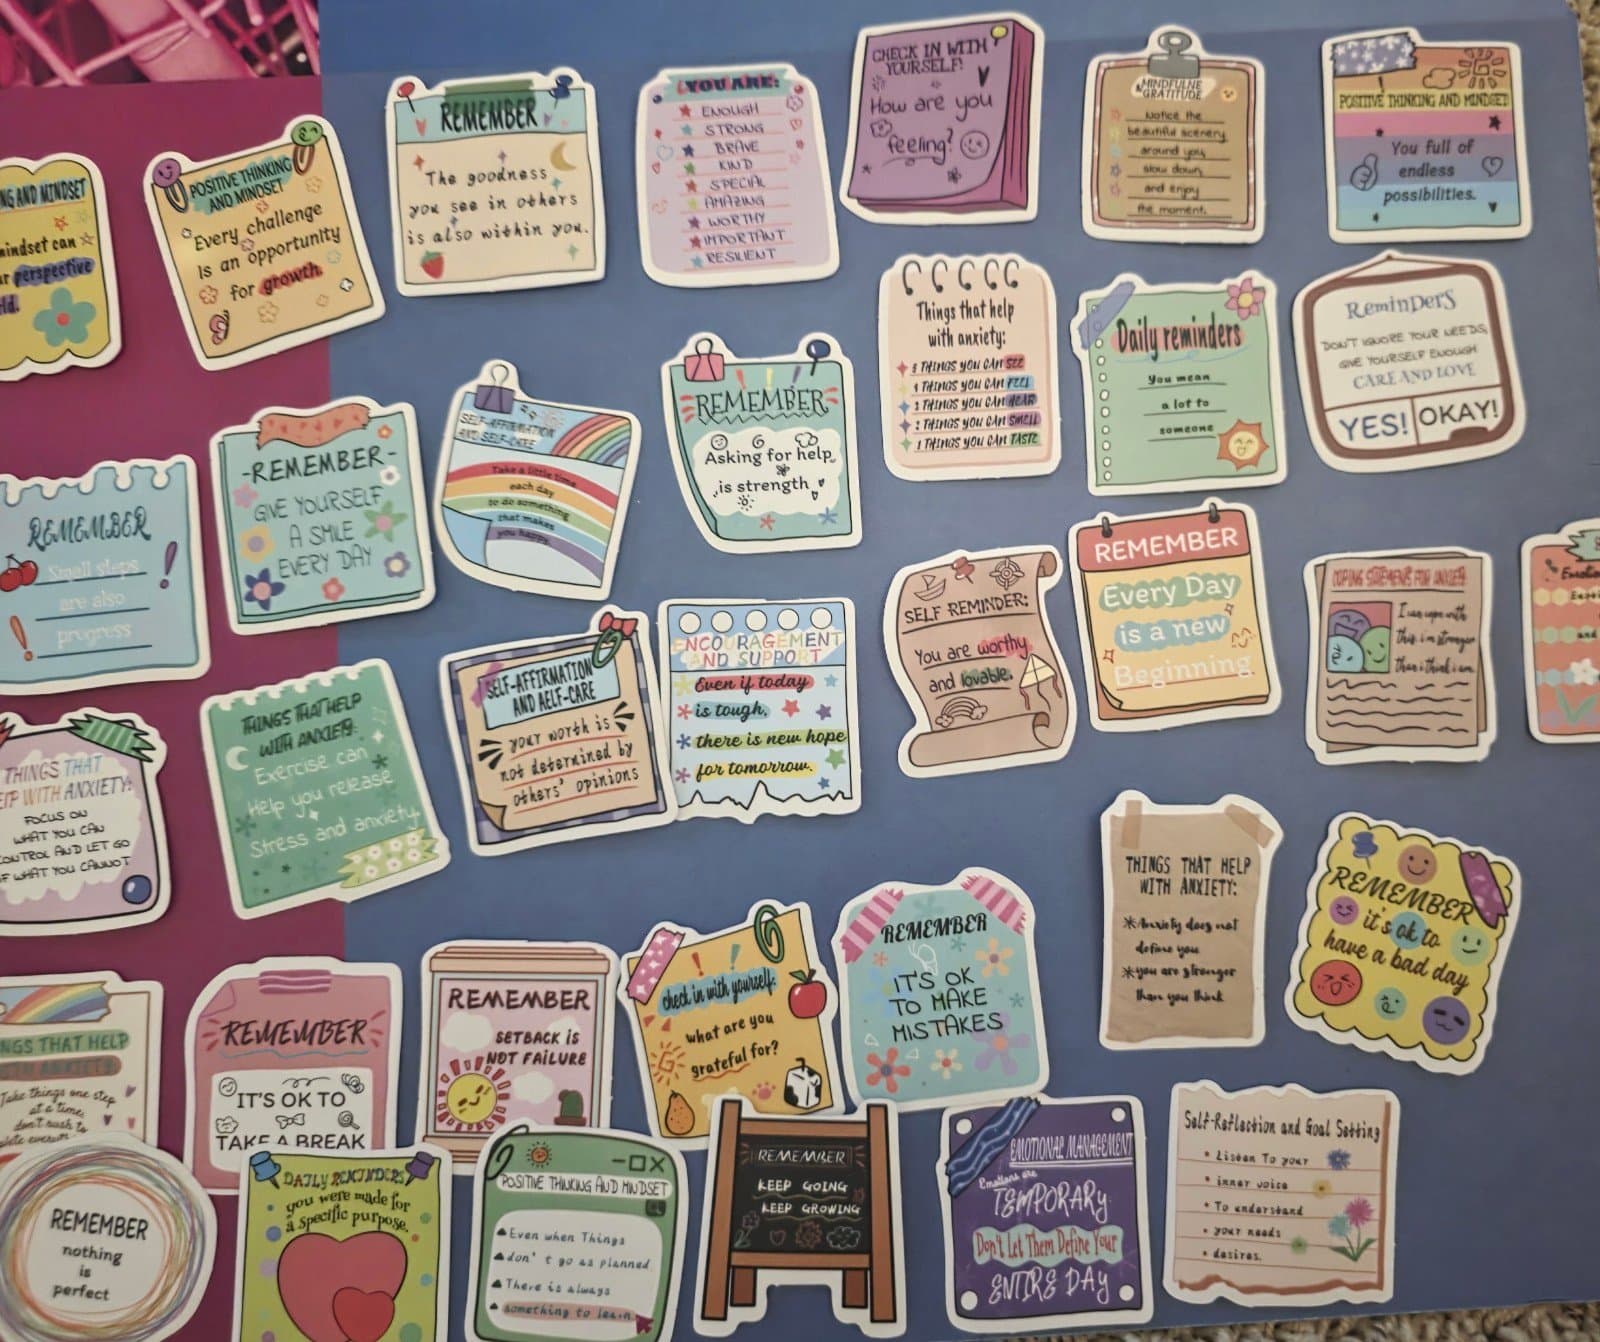 NG AND MINDSET
mindset can
ur perspective
ld.
POSITIVE THINKING
AND MINDSET
Every challenge
Is an opportunity
for growth.
REMEMBER
The goodness
you see in others
is also within you.
YOU ARE:
ENOUGH
STRONG
BRAVE
KIND
SPECIAL
AMAZING
WORTHY
IMPORTANT
RESILIENT
CHECK IN WITH
YOURSELF:
How are you
feeling?
MINDFULNE
GRATITUDE
Notice the
beautiful scenery
around you,
slow down,
and enjoy
the moment.
POSITIVE THINKING AND MINDSET
You full of
endless
possibilities.
REMEMBER
Small steps
are also
progress
-REMEMBER-
GIVE YOURSELF
A SMILE
EVERY DAY
SELF-AFFIRMATION
AND SELF-CARE
Take a little time
each day
to do something
that makes
you happy.
REMEMBER
Asking for help
is strength
Things that help
with anxiety:
5 THINGS YOU CAN SEE
4 THINGS YOU CAN FEEL
3 THINGS YOU CAN HEAR
2 THINGS YOU CAN SMELL
1 THINGS YOU CAN TASTE
Daily reminders
You mean
a lot to
someone
Reminders
DON'T IGNORE YOUR NEEDS,
GIVE YOURSELF ENOUGH
CARE AND LOVE
YES! OKAY!
THINGS THAT
ELP WITH ANXIETY:
FOCUS ON
WHAT YOU CAN
CONTROL AND LET GO
OF WHAT YOU CANNOT
THINGS THAT HELP
WITH ANXIETY:
Exercise can
Help you release
Stress and anxiety
SELF-AFFIRMATION
AND AELF-CARE
your worth is
not determined by
others' opinions
ENCOURAGEMENT
AND SUPPORT
Even if today
is tough,
there is new hope
for tomorrow.
SELF REMINDER:
You are worthy
and lovable.
REMEMBER
Every Day
is a new
Beginning.
COPING STATEMENTS FOR ANXIETY
I can cope with
this. i'm stronger
than i think i am.
Emotio
and
NGS THAT HELP
Take things one step
at a time,
don't rush to
REMEMBER
IT'S OK TO
TAKE A BREAK
REMEMBER
SETBACK IS
NOT FAILURE
check in with yourself:
what are you
grateful for?
REMEMBER
IT'S OK
TO MAKE
MISTAKES
THINGS THAT HELP
WITH ANXIETY:
*Anxiety does not
define you
*you are stronger
than you think
REMEMBER
it's ok to
have a bad day
REMEMBER
nothing
is
perfect
DAILY REMINDERS
you were made for
a specific purpose.
POSITIVE THINKING AND MINDSET
Even when Things
don't go as planned
There is always
something to learn
REMEMBER
KEEP GOING
KEEP GROWING
EMOTIONAL MANAGEMENT
Emotions are
TEMPORARY
Don't Let Them Define Your
ENTIRE DAY
Self-Reflection and Goal Setting
• Listen To your
• inner voice
• To understand
• your needs
• desires.